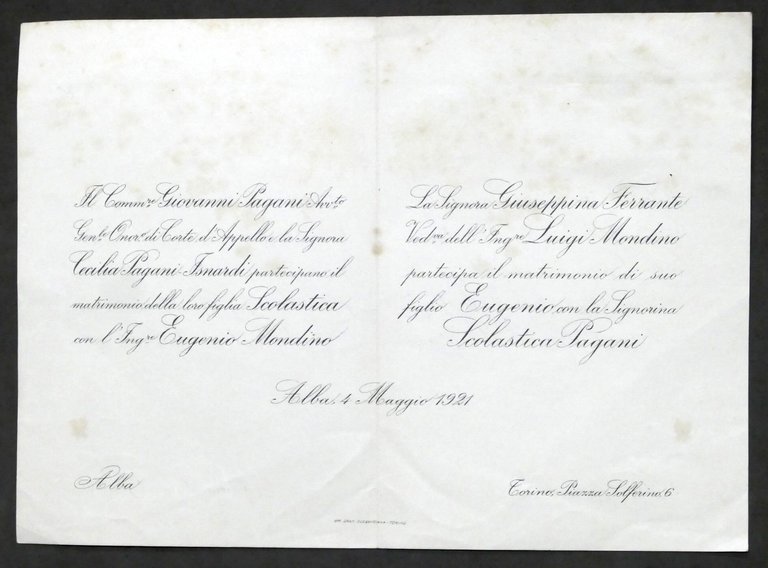 Il Comm.re Giovanni Pagani Avv.to
Gen.le Onor.e di Corte d'Appello e la Signora
Cecilia Pagani-Isnardi partecipano il
matrimonio della loro figlia Scolastica
con l'Ing.re Eugenio Mondino
La Signora Giuseppina Ferrante
Ved.va dell'Ing.re Luigi Mondino
partecipa il matrimonio di suo
figlio Eugenio con la Signorina
Scolastica Pagani
Alba, 4 Maggio 1921
Alba
Torino, Piazza Solferino, 6